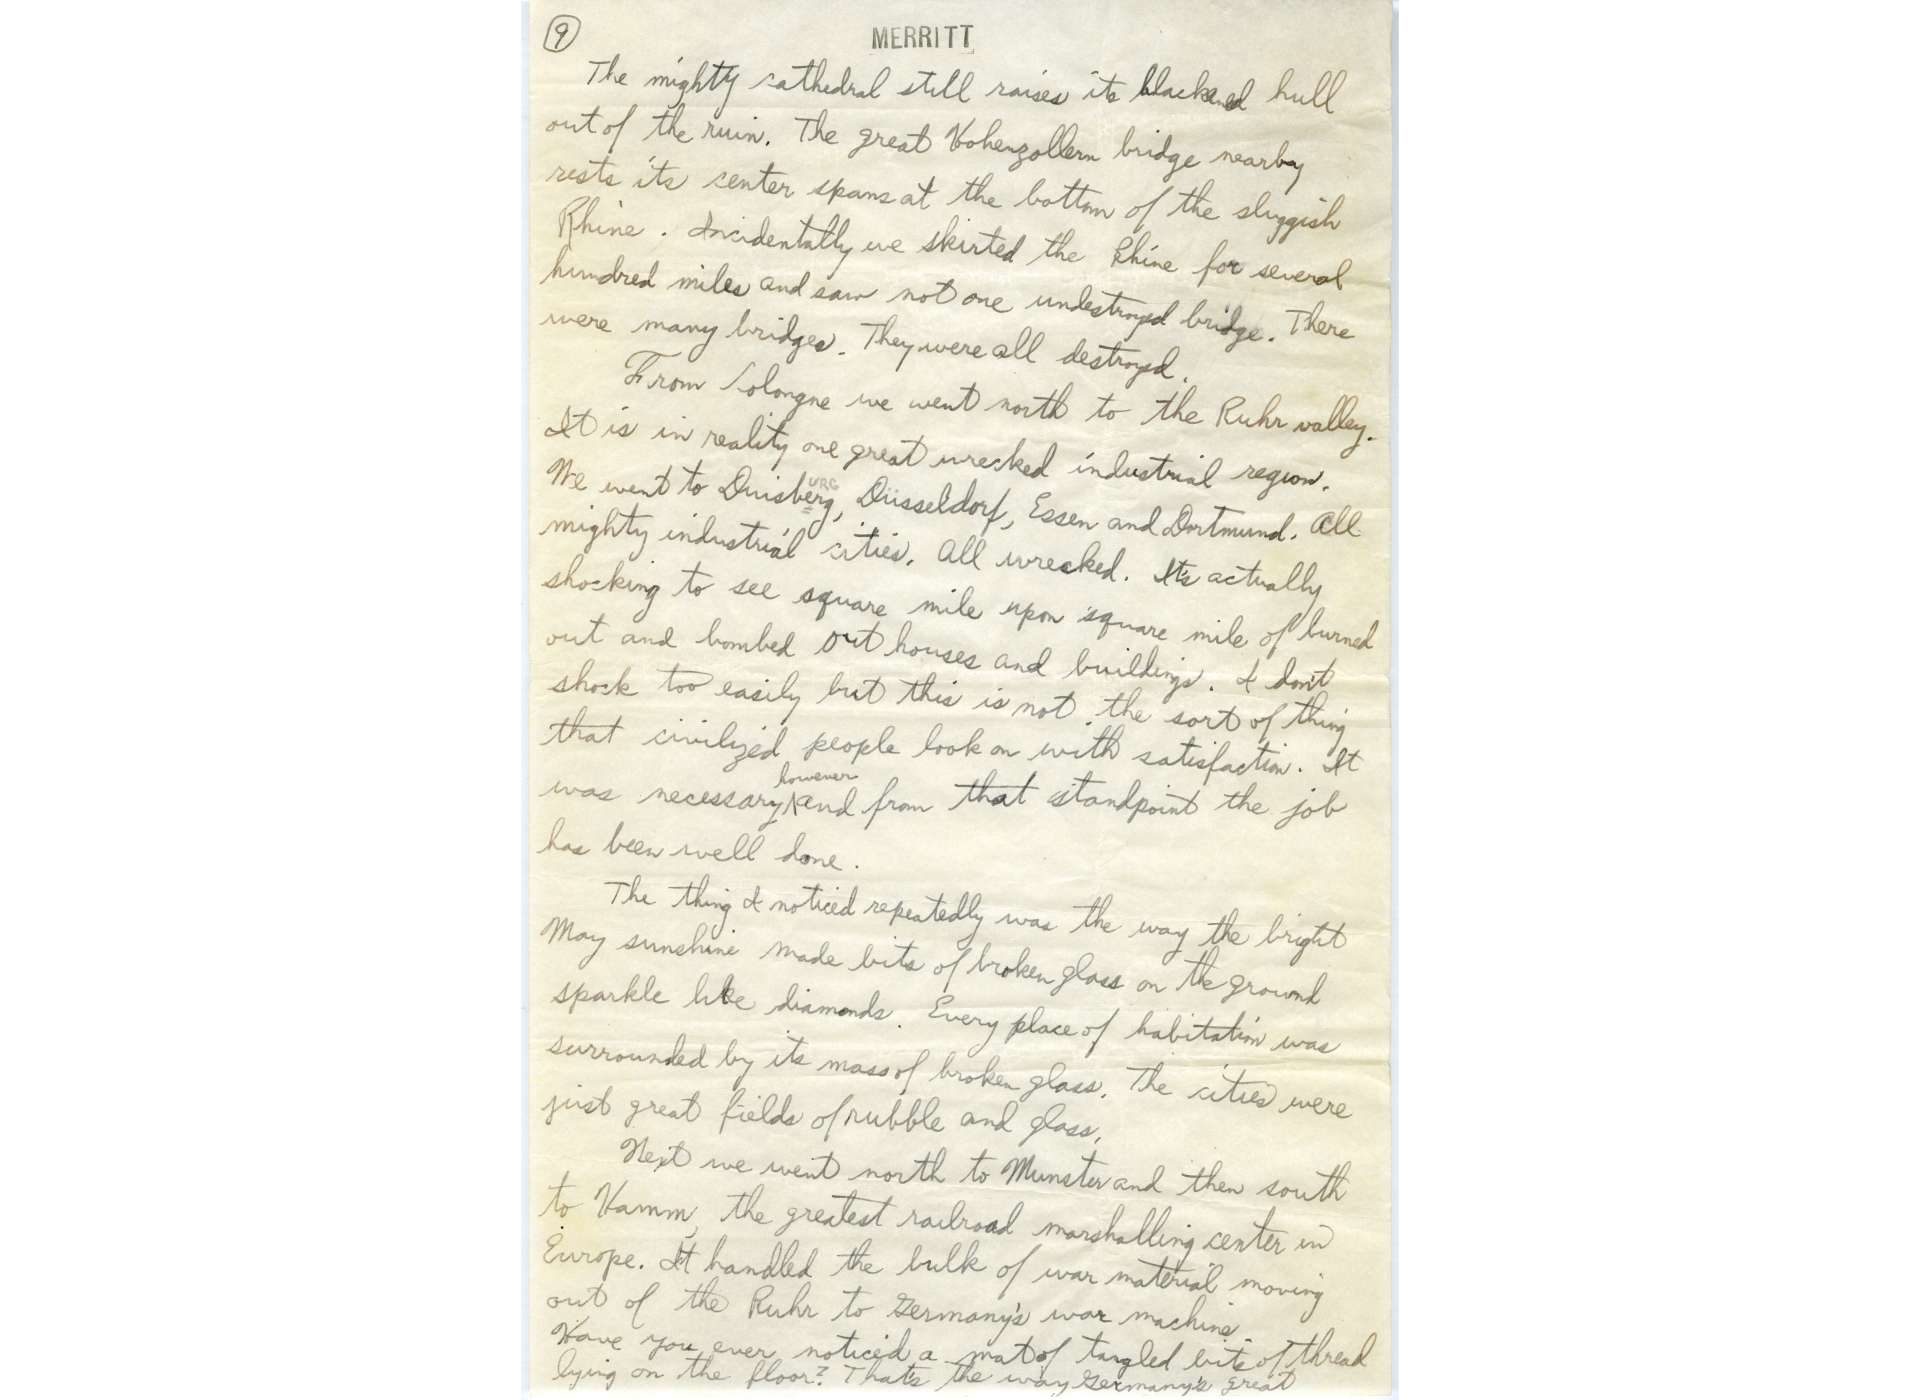 9
MERRITT
The mighty cathedral still raises its blackened hull
out of the ruin. The great Hohenzollern bridge nearby
rests its center spans at the bottom of the sluggish
Rhine. Incidentally we skirted the Rhine for several
hundred miles and saw not one undestroyed bridge. There
were many bridges. They were all destroyed.
From Cologne we went north to the Ruhr valley.
It is in reality one great wrecked industrial region.
URG
We went to Duisberg, Düsseldorf, Essen and Dortmund. All
mighty industrial cities. All wrecked. It's actually
shocking to see square mile upon square mile of burned
out and bombed out houses and buildings. I don't
shock too easily but this is not the sort of thing
that civilized people look on with satisfaction. It
however
was necessary, and from that standpoint the job
has been well done.
The thing I noticed repeatedly was the way the bright
May sunshine made bits of broken glass on the ground
sparkle like diamonds. Every place of habitation was
surrounded by its mass of broken glass. The cities were
just great fields of rubble and glass.
Next we went north to Munster and then south
to Hamm, the greatest railroad marshalling center in
Europe. It handled the bulk of war material moving
out of the Ruhr to Germany's war machine.
Have you ever noticed a mat of tangled bits of thread
lying on the floor? That's the way Germany's great